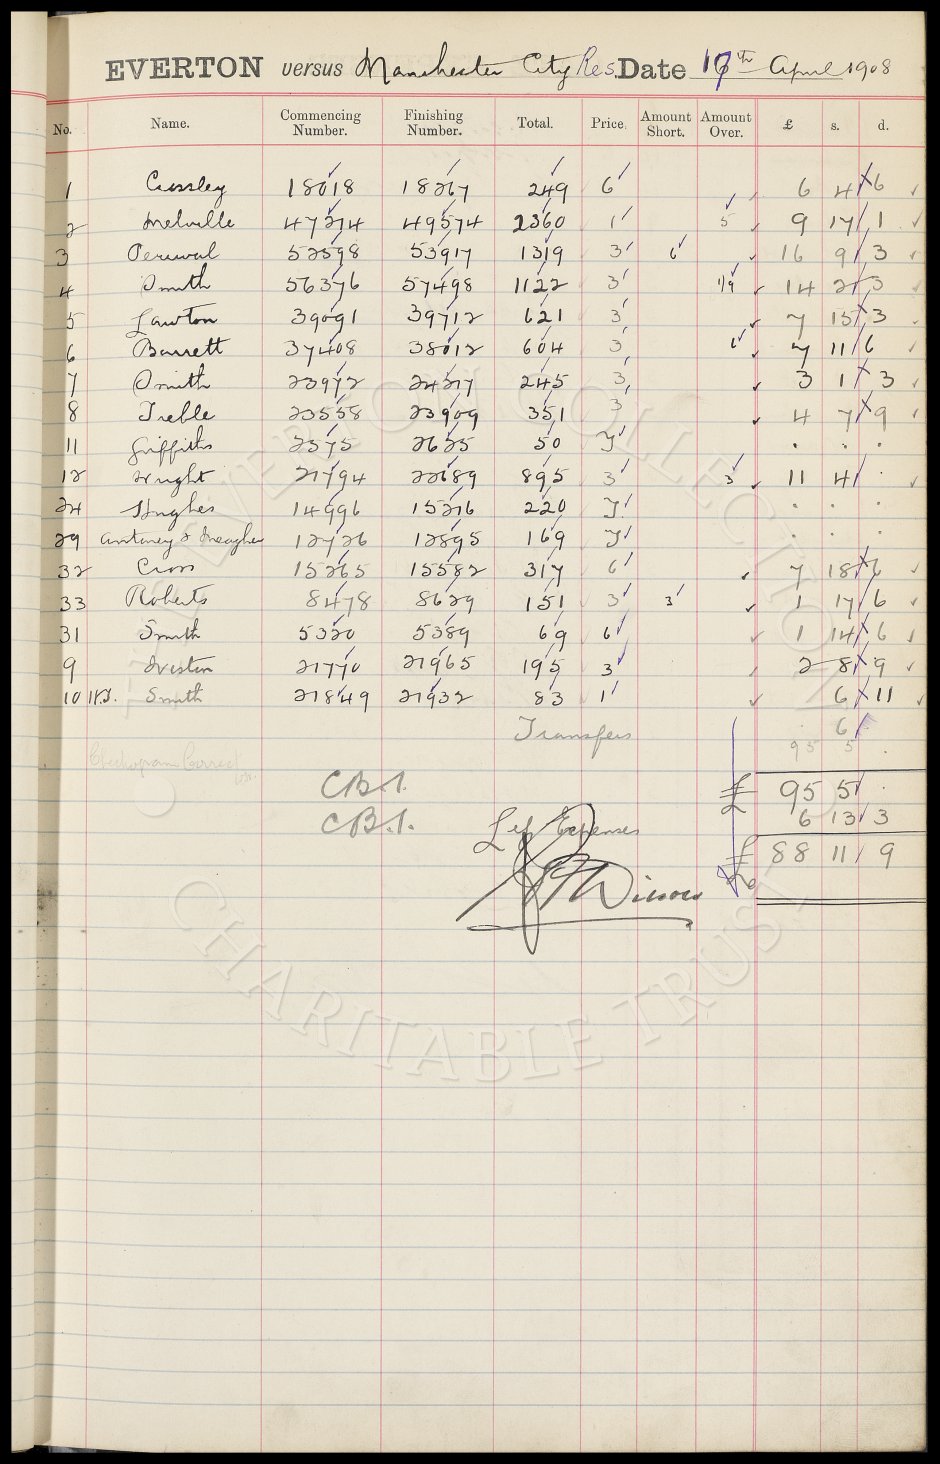 EVERTON versus Manchester City Res. Date 17th April 1908
No. Name. Commencing Number. Finishing Number. Total. Price. Amount Short. Amount Over. £ s. d.
1 Crossley 18018 18267 249 6 6 4 6
2 Melville 47214 49574 2360 1 5 9 17 1
3 Percival 52598 53917 1319 3 6 16 9 3
4 Smith 56376 57498 1122 3 1/9 14 2 3
5 Lawton 39091 39712 621 3 7 15 3
6 Barrett 37408 38012 604 3 6 7 11 6
7 Smith 23972 24217 245 3 3 1 3
8 Treble 23558 23909 351 3 4 7 9
11 Griffiths 2575 2625 50 T . . .
12 Wright 21794 22689 895 3 3 11 4
24 Hughes 14996 15216 220 T . . .
29 Antoney & Meagher 12726 12895 169 T . . .
32 Cross 15265 15582 317 6 7 18 6
33 Roberts 8478 8629 151 3 3 1 17 6
31 Smith 5320 5389 69 6 1 14 6
9 Weston 21770 21965 195 3 2 8 9
10 H.T. Smith 21849 21932 83 1 6 11
Transfers 6
95 5 .
Checkogram Correct
C B.1. £ 95 5 .
C B.1. Less Expenses 6 13 3
£ 88 11 9
EVERTON COLLECTION
CHARITABLE TRUST